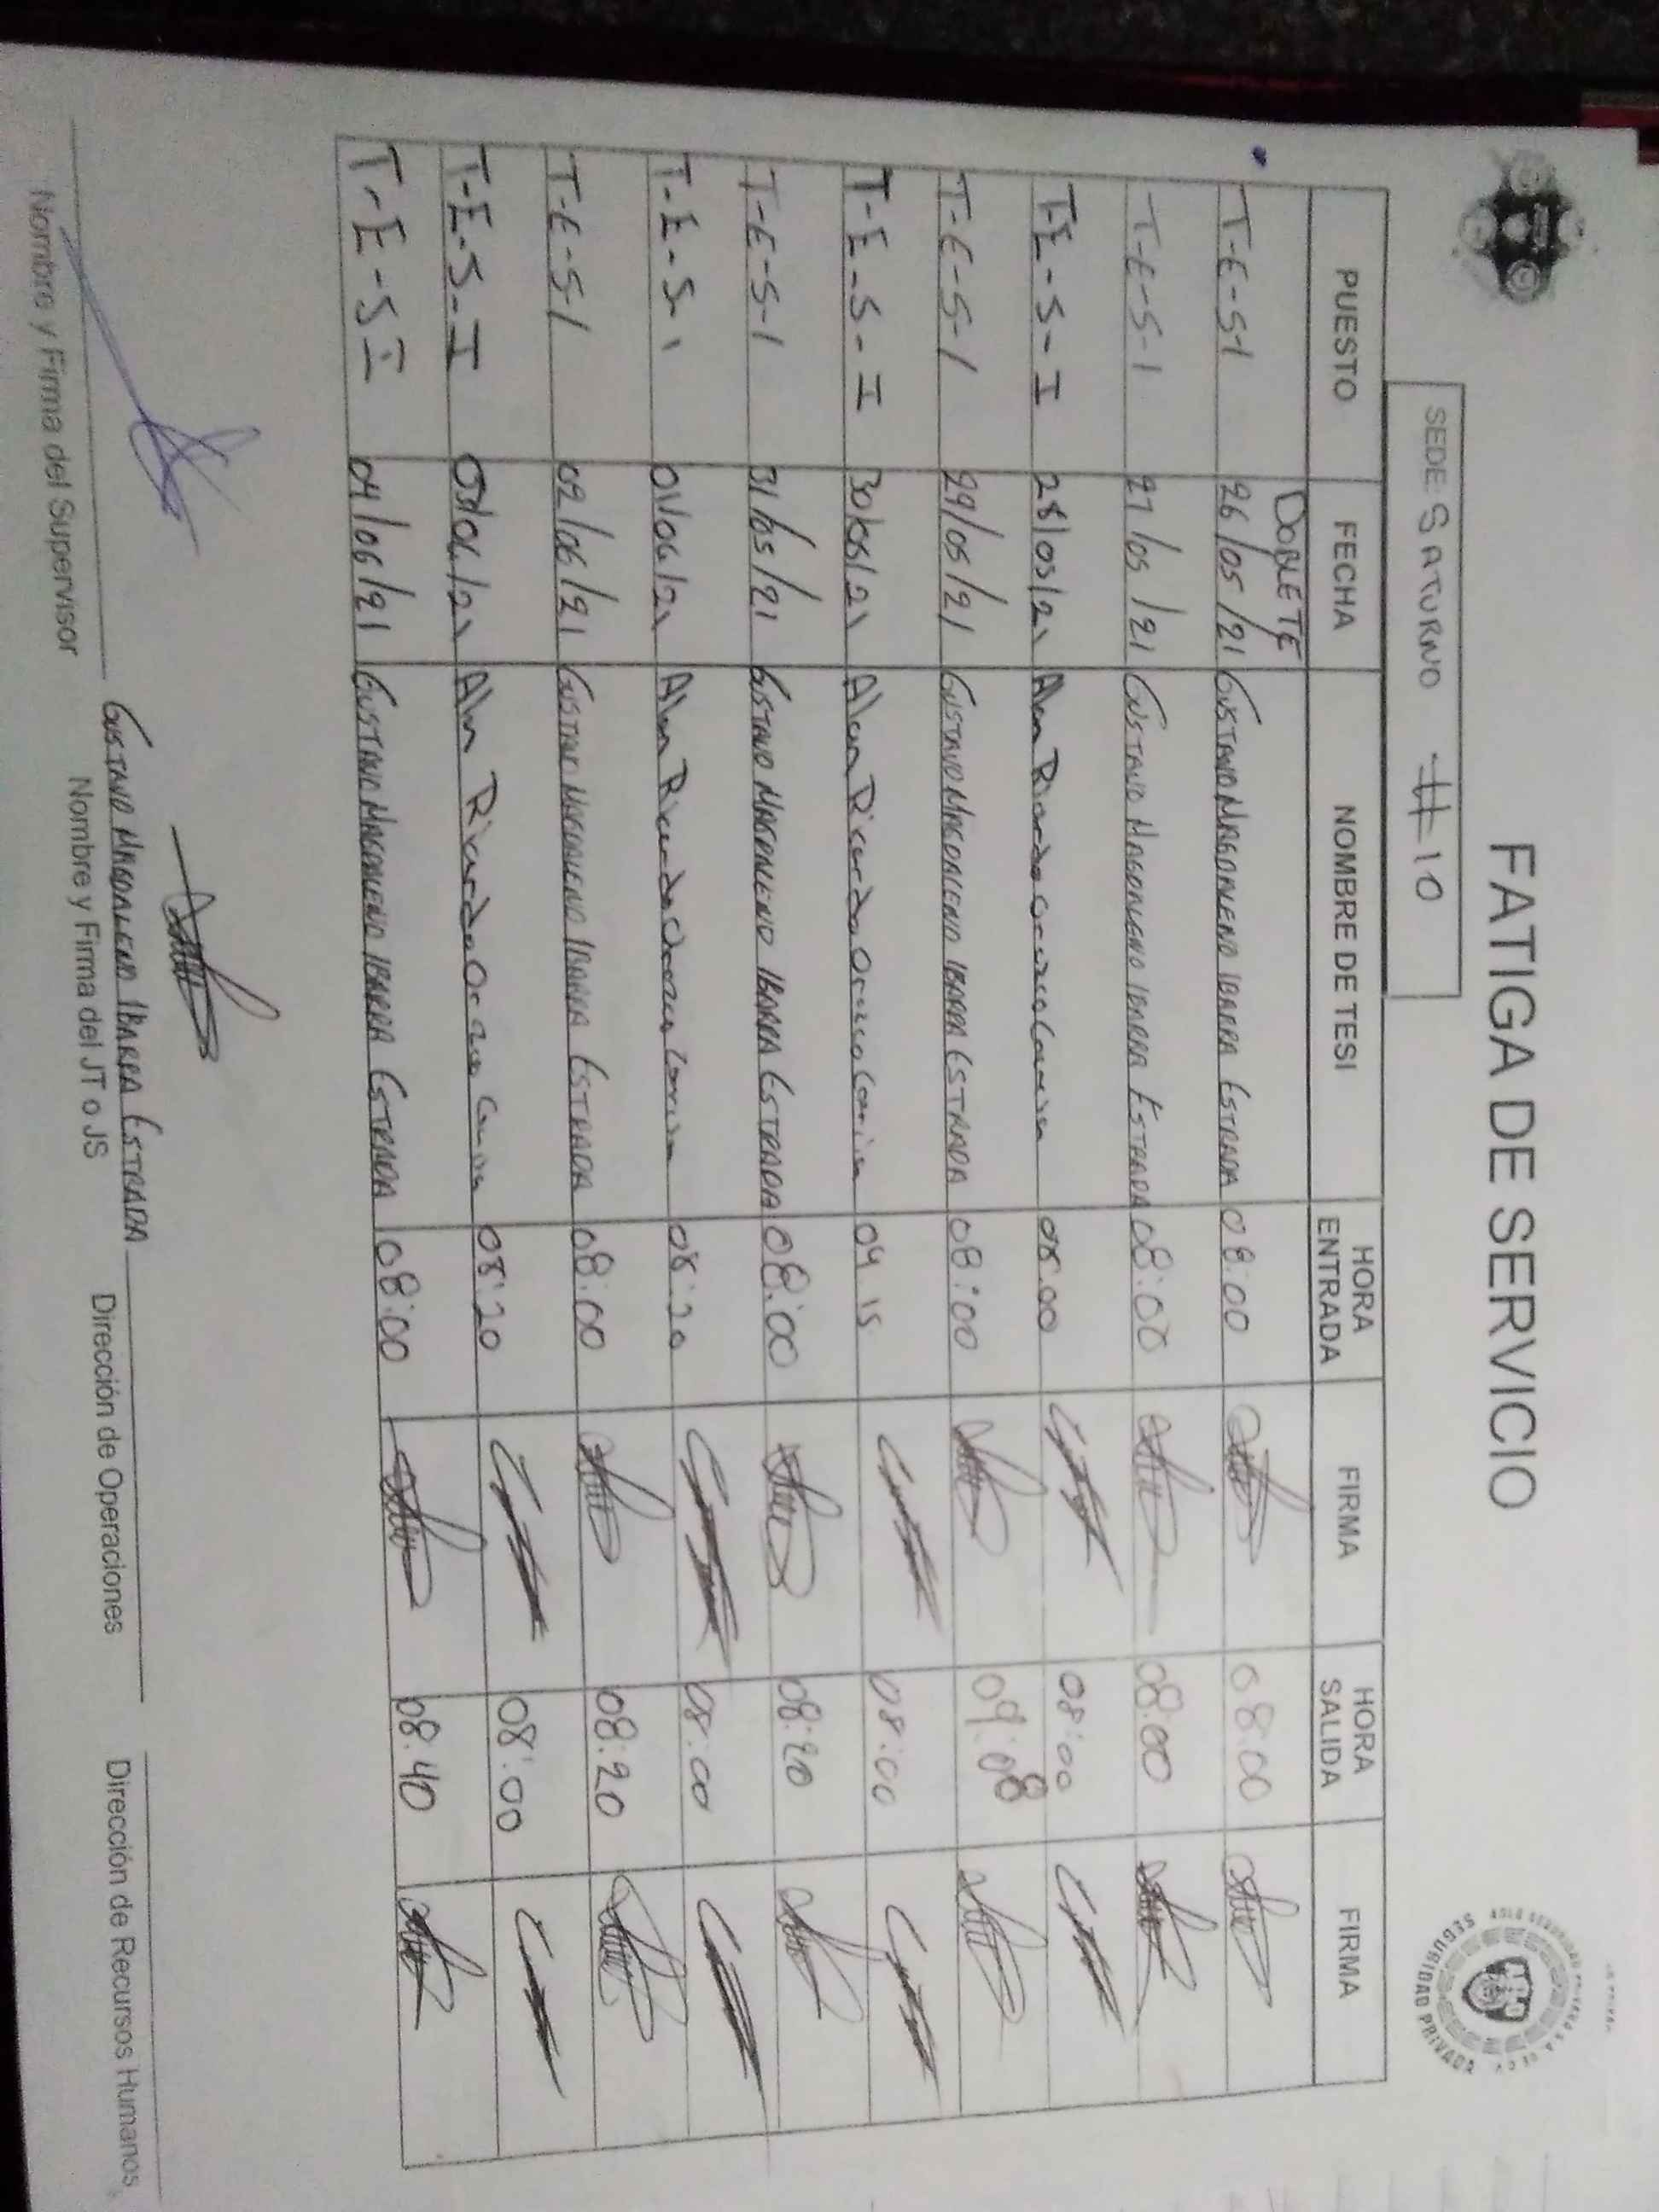 FATIGA DE SERVICIO
SEDE: SATURNO #10
SEGURIDAD PRIVADA
PUESTO FECHA NOMBRE DE TESI HORA ENTRADA FIRMA HORA SALIDA FIRMA
DOBLETE
T-E-S-1 26/05/21 GUSTAVO MAGDALENO IBARRA ESTRADA 08:00 08:00
T-E-S-1 27/05/21 GUSTAVO MAGDALENO IBARRA ESTRADA 08:00 08:00
T-E-S-I 28/05/21 Alan Ricardo Orozco 08:00 08:00
T-E-S-1 29/05/21 GUSTAVO MAGDALENO IBARRA ESTRADA 08:00 09:08
T-E-S-I 30/05/21 Alan Ricardo Orozco 09 15 08:00
T-E-S-1 31/05/21 GUSTAVO MAGDALENO IBARRA ESTRADA 08:00 08:20
T-E-S-1 01/06/21 Alan Ricardo Orozco 08:20 08:00
T-E-S-1 02/06/21 GUSTAVO MAGDALENO IBARRA ESTRADA 08:00 08:20
T-E-S-I 03/06/21 Alan Ricardo Orozco 08:20 08:00
T-E-S-I 04/06/21 GUSTAVO MAGDALENO IBARRA ESTRADA 08:00 08:40
GUSTAVO MAGDALENO IBARRA ESTRADA
Nombre y Firma del Supervisor Nombre y Firma del JT o JS Dirección de Operaciones Dirección de Recursos Humanos